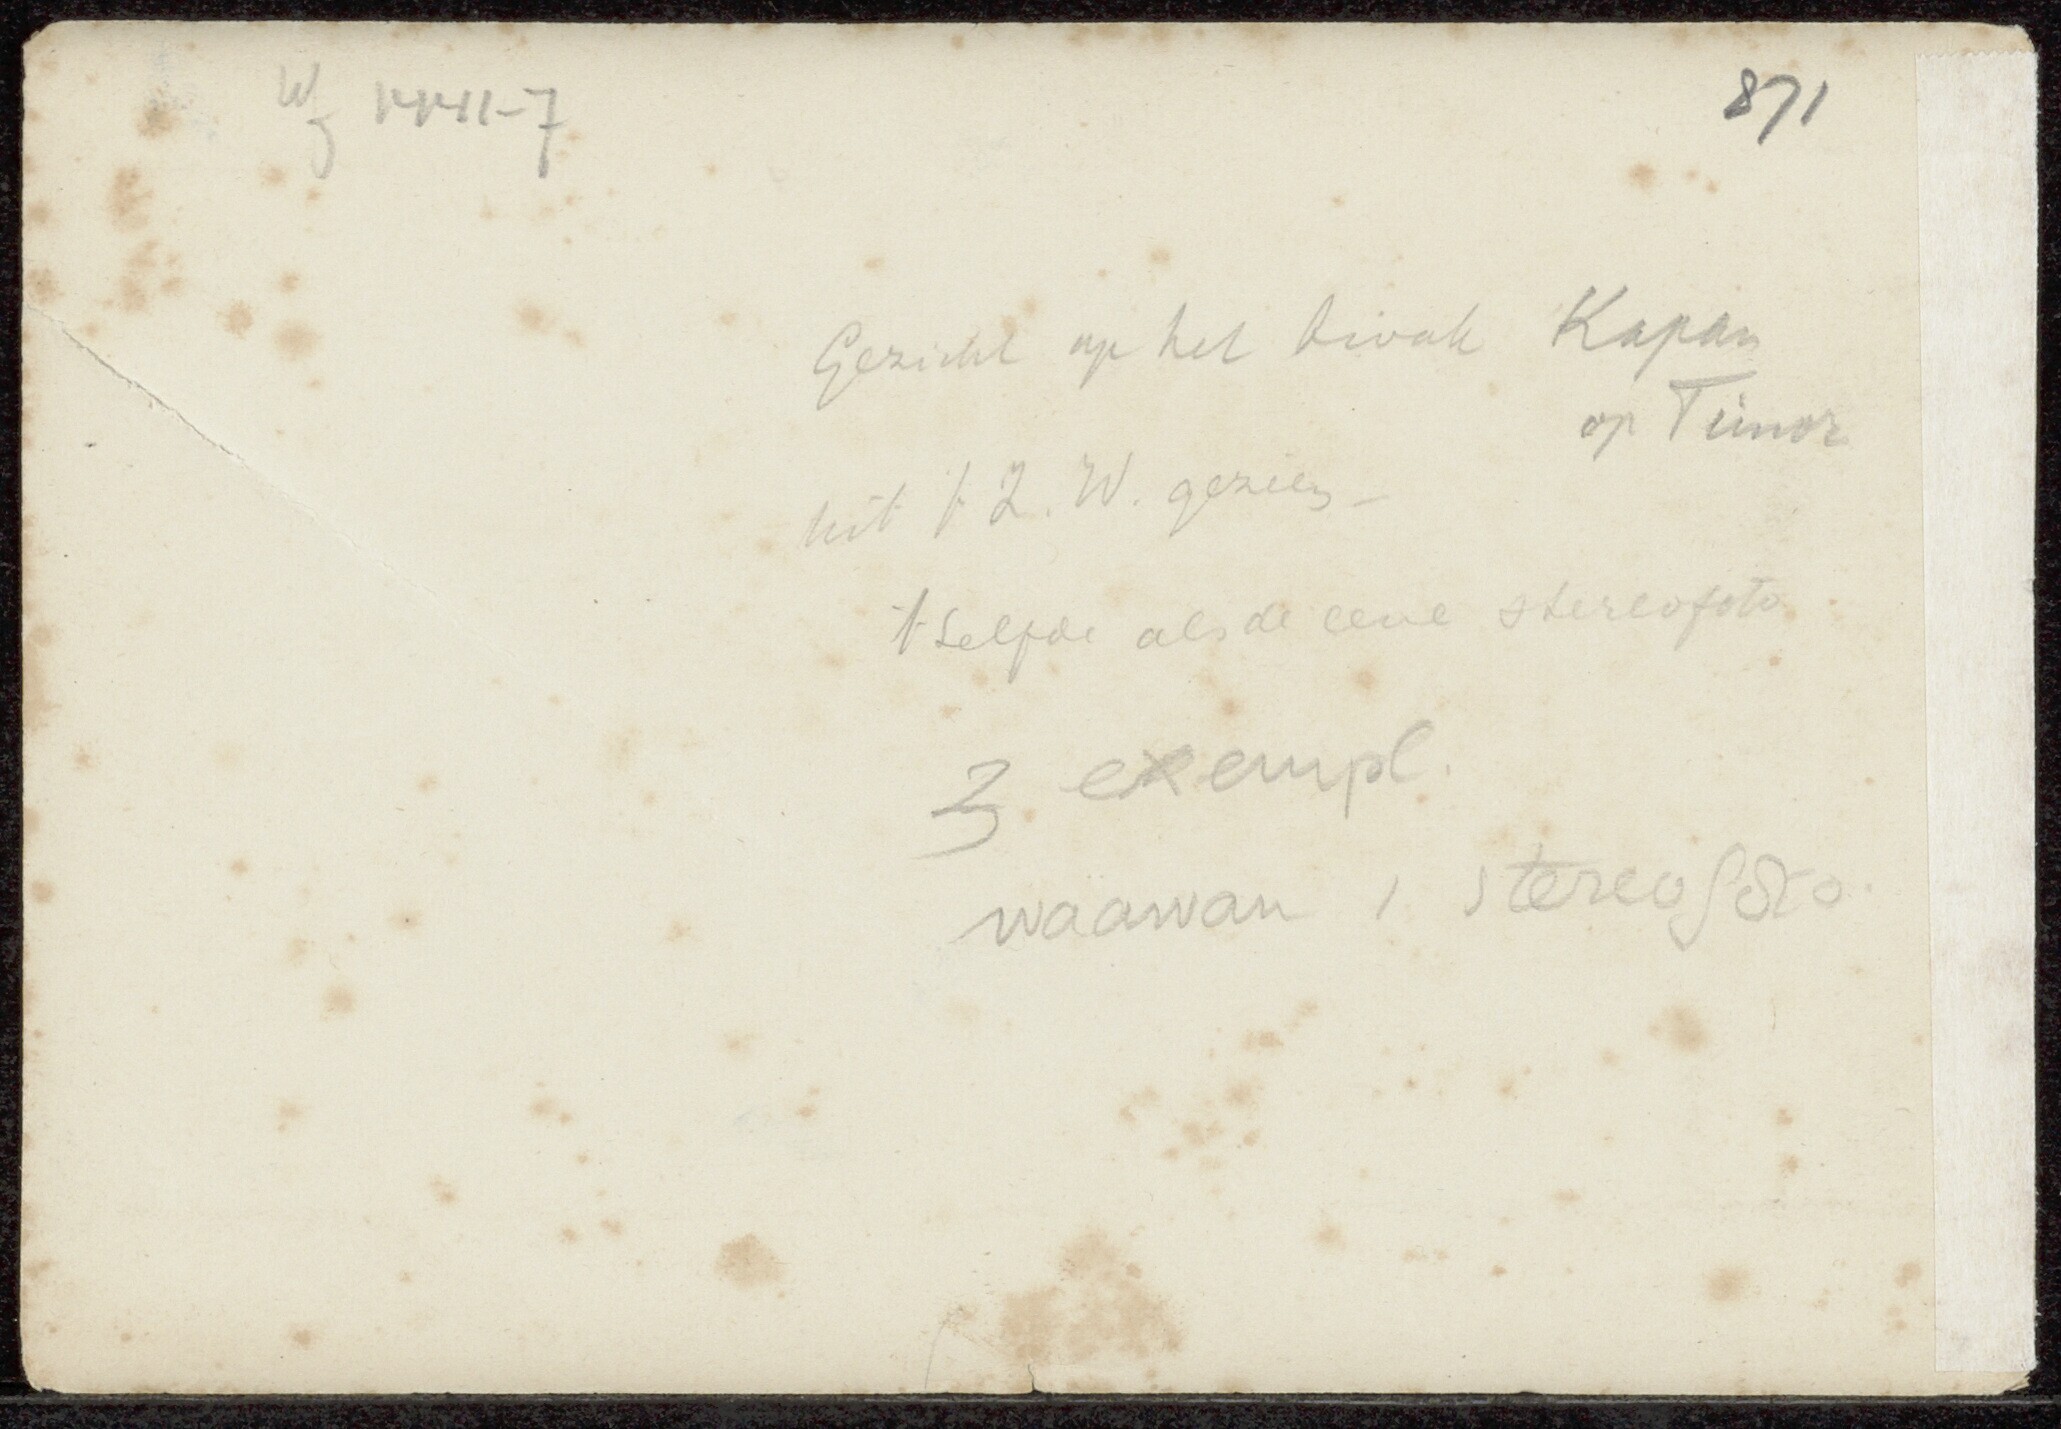 871
Gezicht op het bivak Kapan
op Timor
uit 't Z.W. gezien –
't selfde als de eene stereofoto
3 exempl.
waarvan 1 stereofoto.